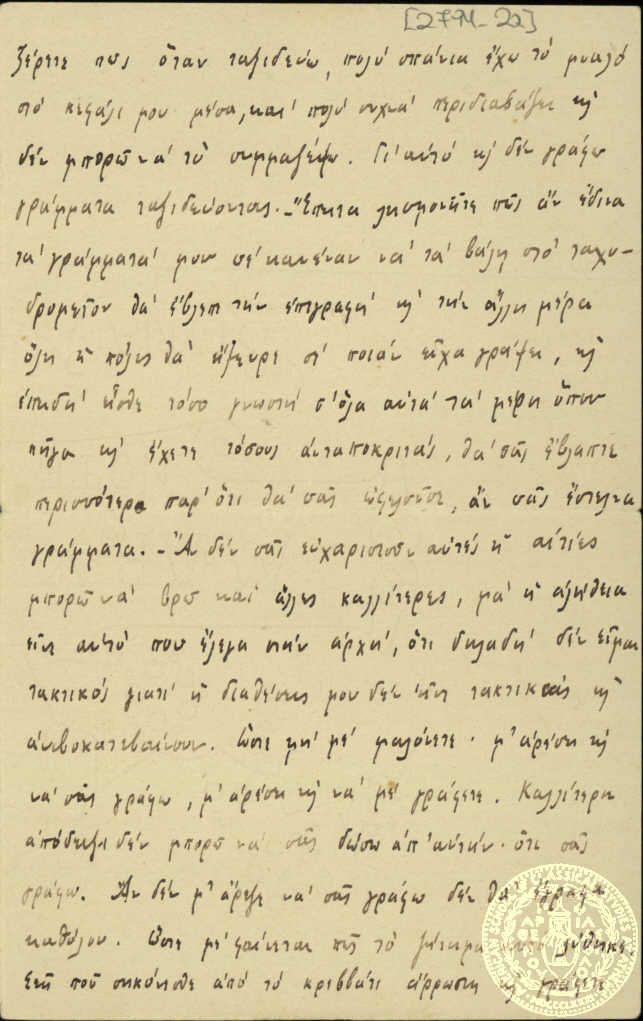 [2794-22]
ξέρετε πως ὅταν ταξιδεύω, πολύ σπάνια ἔχω τό μυαλό
στό κεφάλι μου μέσα, καί πολύ συχνά περιδιαβάζει κ᾽
δέν μπορῶ νά τό συμμαζέψω. Γι' αὐτό κ᾽ δέν γράφω
γράμματα ταξιδεύοντας. - Ἔπειτα λησμονῆτε πῶς ἄν ἔδινα
τά γράμματά μου σέ κανέναν νά τά βάλῃ στό ταχυ-
δρομεῖον θά ἔβλεπε τήν ἐπιγραφή κ᾽ τήν ἄλλη μέρα
ὅλη ἡ πόλις θά ἤξευρε σέ ποιάν εἶχα γράψει, κ᾽
ἐπειδή εἶσθε τόσο γνωστή σ' ὅλα αὐτά τά μέρη ὅπου
πῆγα κ᾽ ἔχετε τόσους ἀνταποκριτάς, θά σᾶς ἔβλαπτε
περισσότερο παρ' ὅτι θά σᾶς ὠφελοῦσε, ἄν σᾶς ἔστελνα
γράμματα. - Ἄ δέν σᾶς εὐχαριστοῦν αὐτές ἡ αἰτίες
μπορῶ νά βρῶ καί ἄλλες καλλίτερες, μά ἡ ἀλήθεια
εἶνε αὐτό που ἔλεγα στήν ἀρχή, ὅτι δηλαδή δέν εἶμαι
τακτικός γιατί ἡ διαθέσεις μου δέν εἶνε τακτικές κ᾽
ἀνεβοκατεβαίνουν. Ὥστε μή μέ μαλόνετε. μ' ἀρέσει κ᾽
νά σᾶς γράφω, μ' ἀρέσει κ᾽ νά μέ γράφετε. Καλλίτερη
ἀπόδειξι δέν μπορῶ νά σᾶς δώσω ἀπ' αὐτήν. ὅτι σᾶς
γράφω. Ἄν δέν μ' ἄρεζε νά σᾶς γράφω δέν θά ἔγραφα
καθόλου. Ὥστε μέ φαίνεται πῶς τό ζήτημα αὐτό λύθηκε.
Ἐσῆ ποῦ σηκόνεσθε ἀπό τό κρεββάτι ἄρρωστη κ᾽ γράφετε